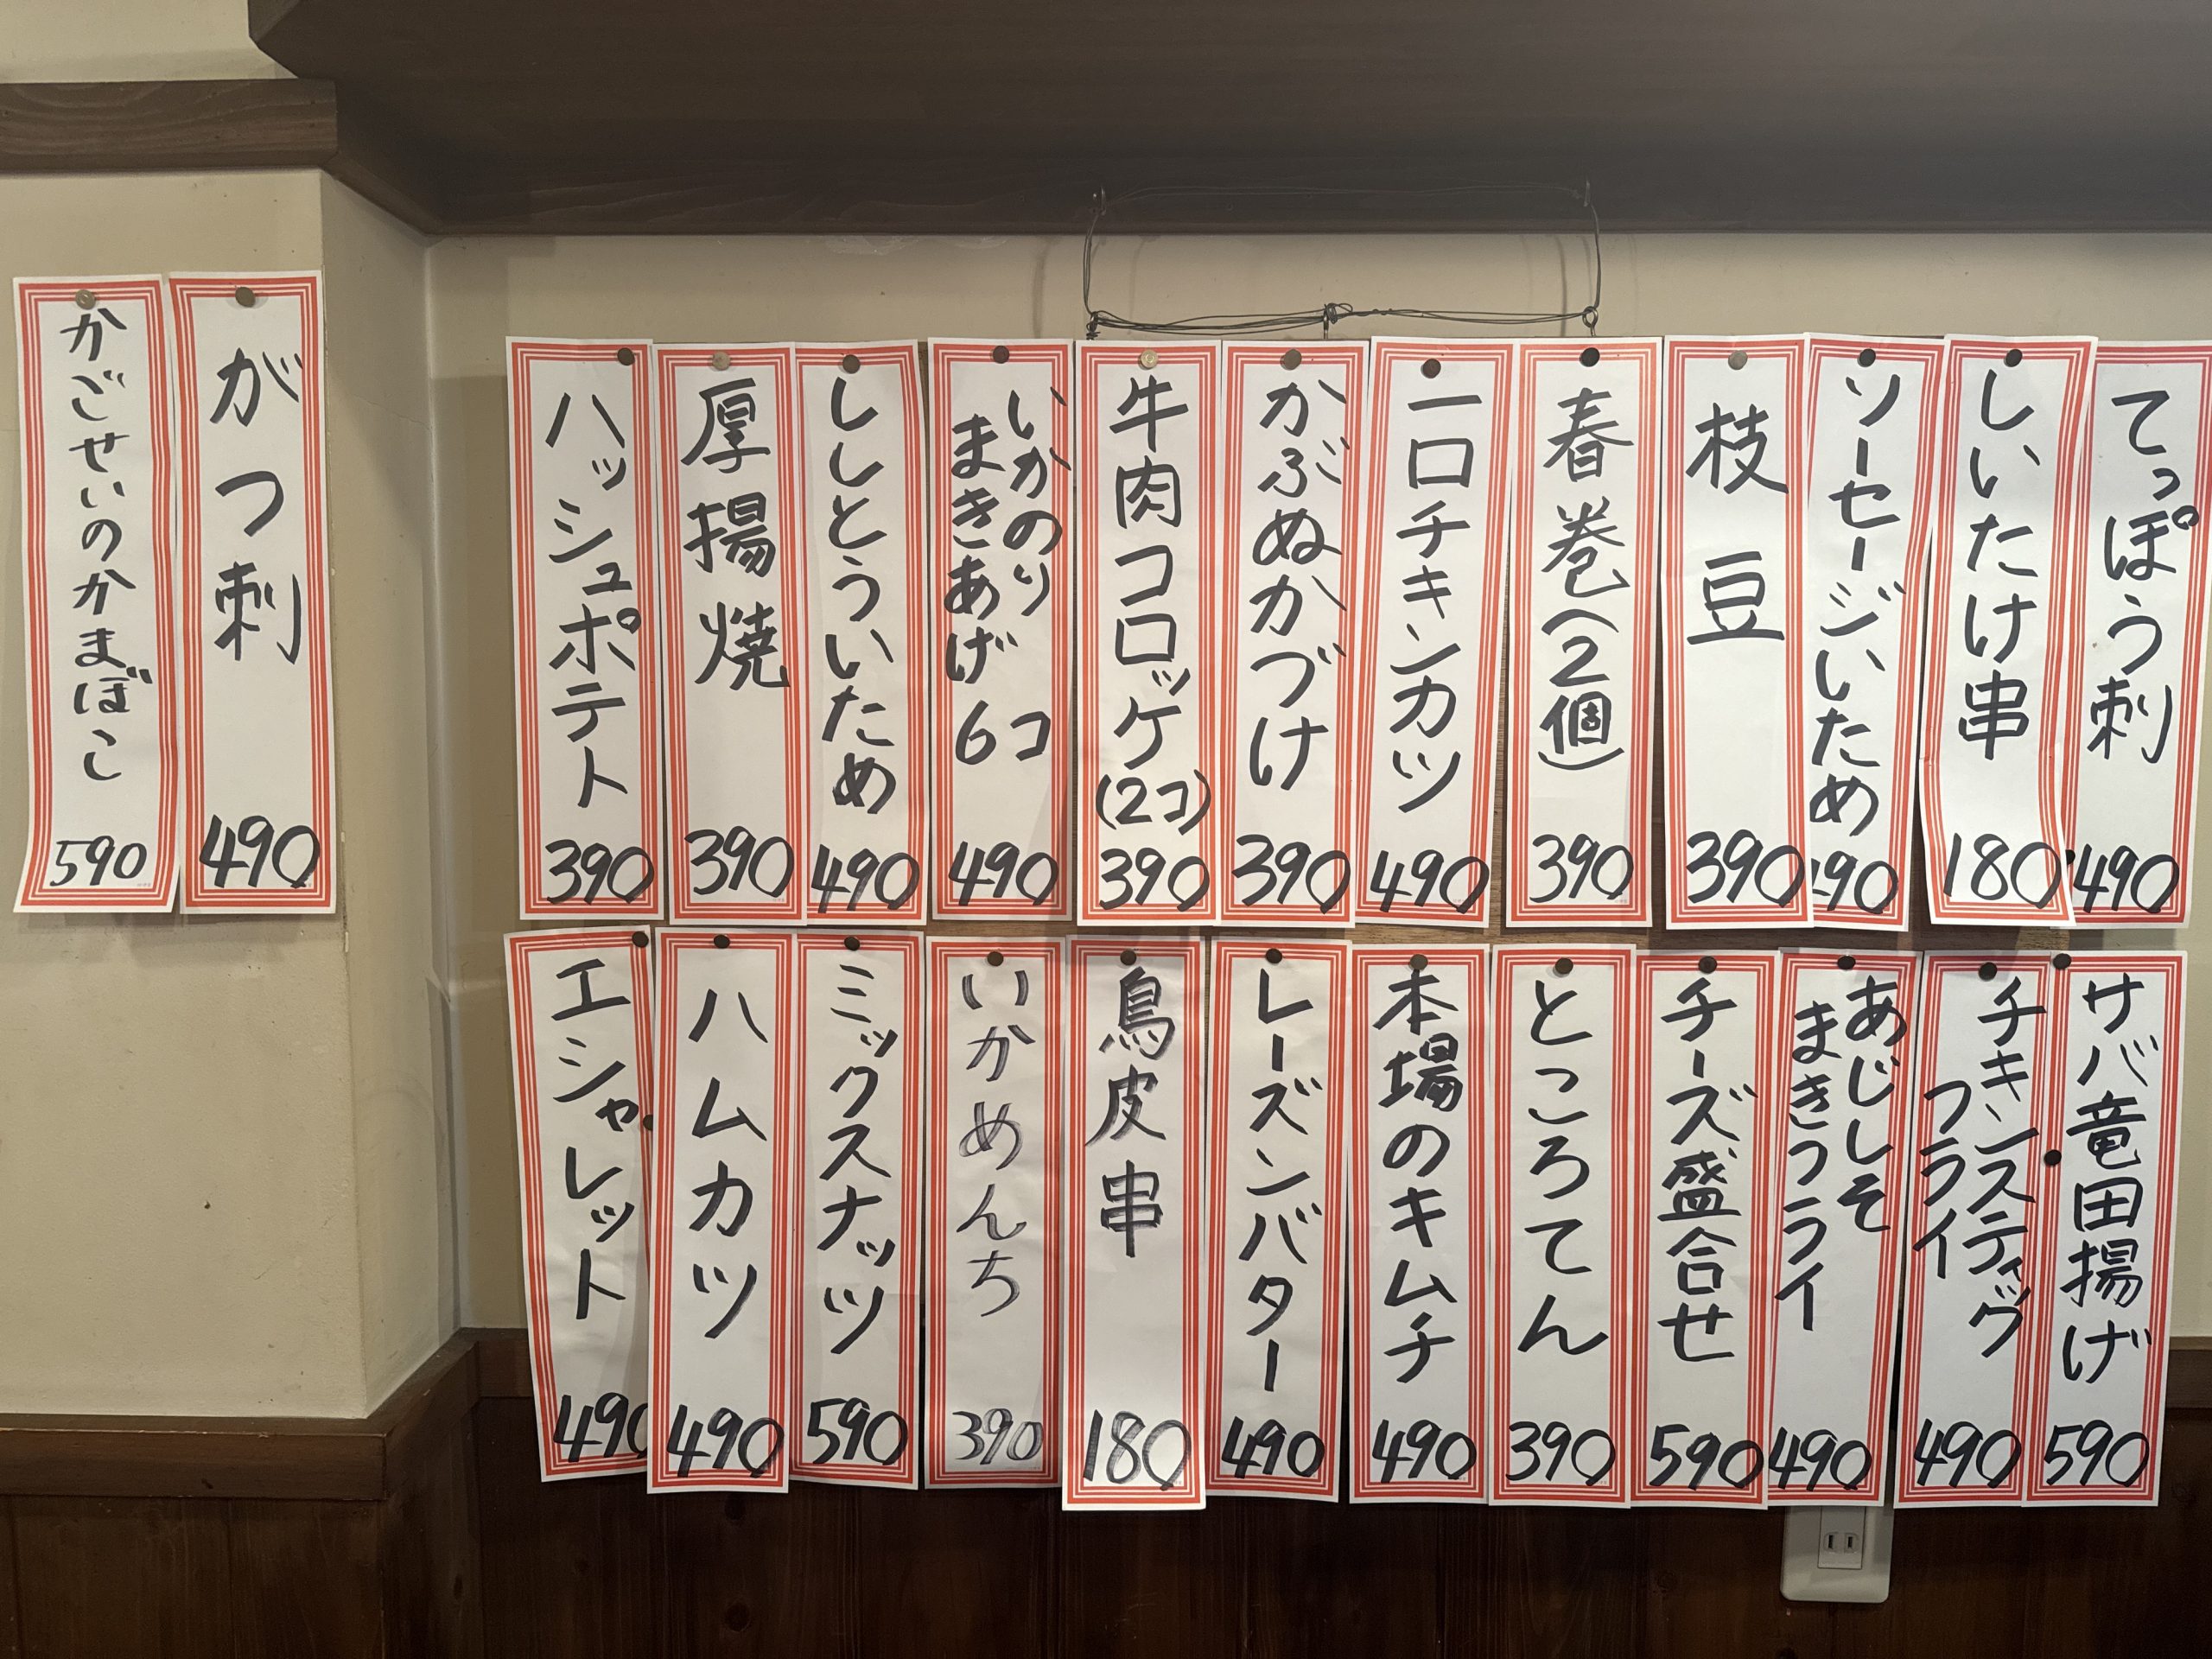 てっぽう刺
490
しいたけ串
180
ソーセージいため
490
枝豆
390
春巻(2個)
390
一口チキンカツ
490
かぶぬかづけ
390
牛肉コロッケ
(2コ)
390
いかのり
まきあげ 6コ
490
ししとういため
490
厚揚焼
390
ハッシュポテト
390
がつ刺
490
かごせいのかまぼこ
590
サバ竜田揚げ
590
チキンスティック
フライ
490
あじしそ
まきフライ
490
チーズ盛合せ
590
ところてん
390
本場のキムチ
490
レーズンバター
490
鳥皮串
180
いかめんち
390
ミックスナッツ
590
ハムカツ
490
エシャレット
490